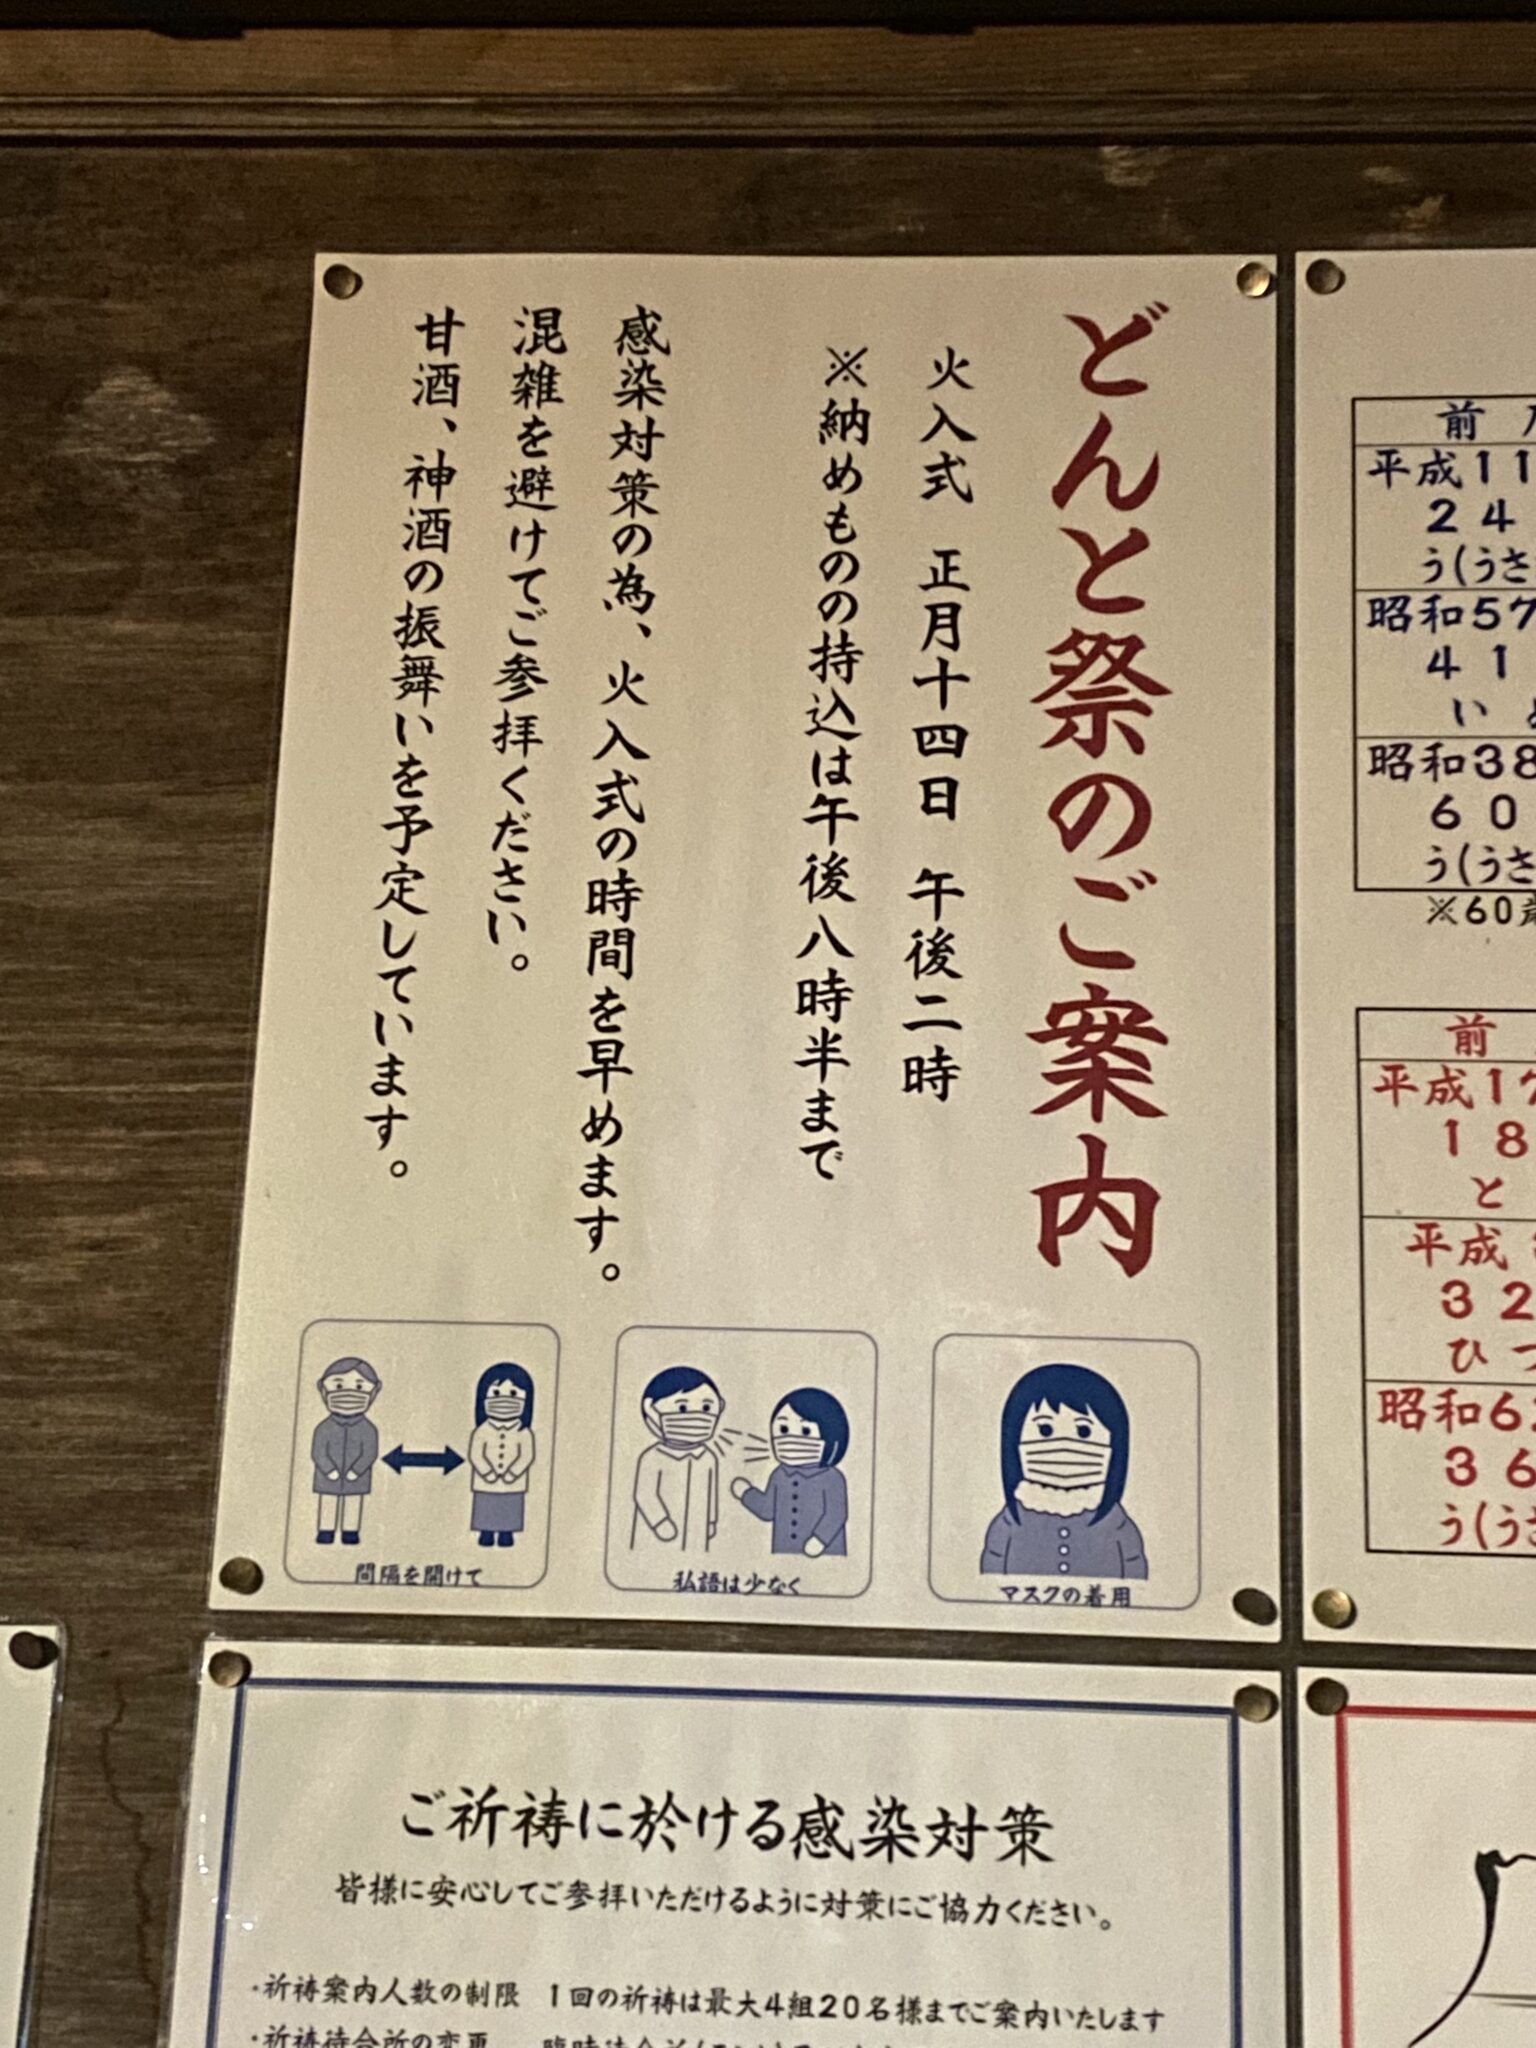 どんと祭のご案内
火入式 正月十四日 午後二時
※納めものの持込は午後八時半まで
感染対策の為、火入式の時間を早めます。
混雑を避けてご参拝ください。
甘酒、神酒の振舞いを予定しています。
間隔を開けて
私語は少なく
マスクの着用
前
平成11
24
う(うさ
昭和57
41
い
昭和38
60
う(うさ
※60歳
前
平成17
18
と
平成
32
ひつ
昭和6
36
う(うさ
ご祈祷に於ける感染対策
皆様に安心してご参拝いただけるように対策にご協力ください。
・祈祷案内人数の制限 1回の祈祷は最大4組20名様までご案内いたします
・祈祷待合所の変更